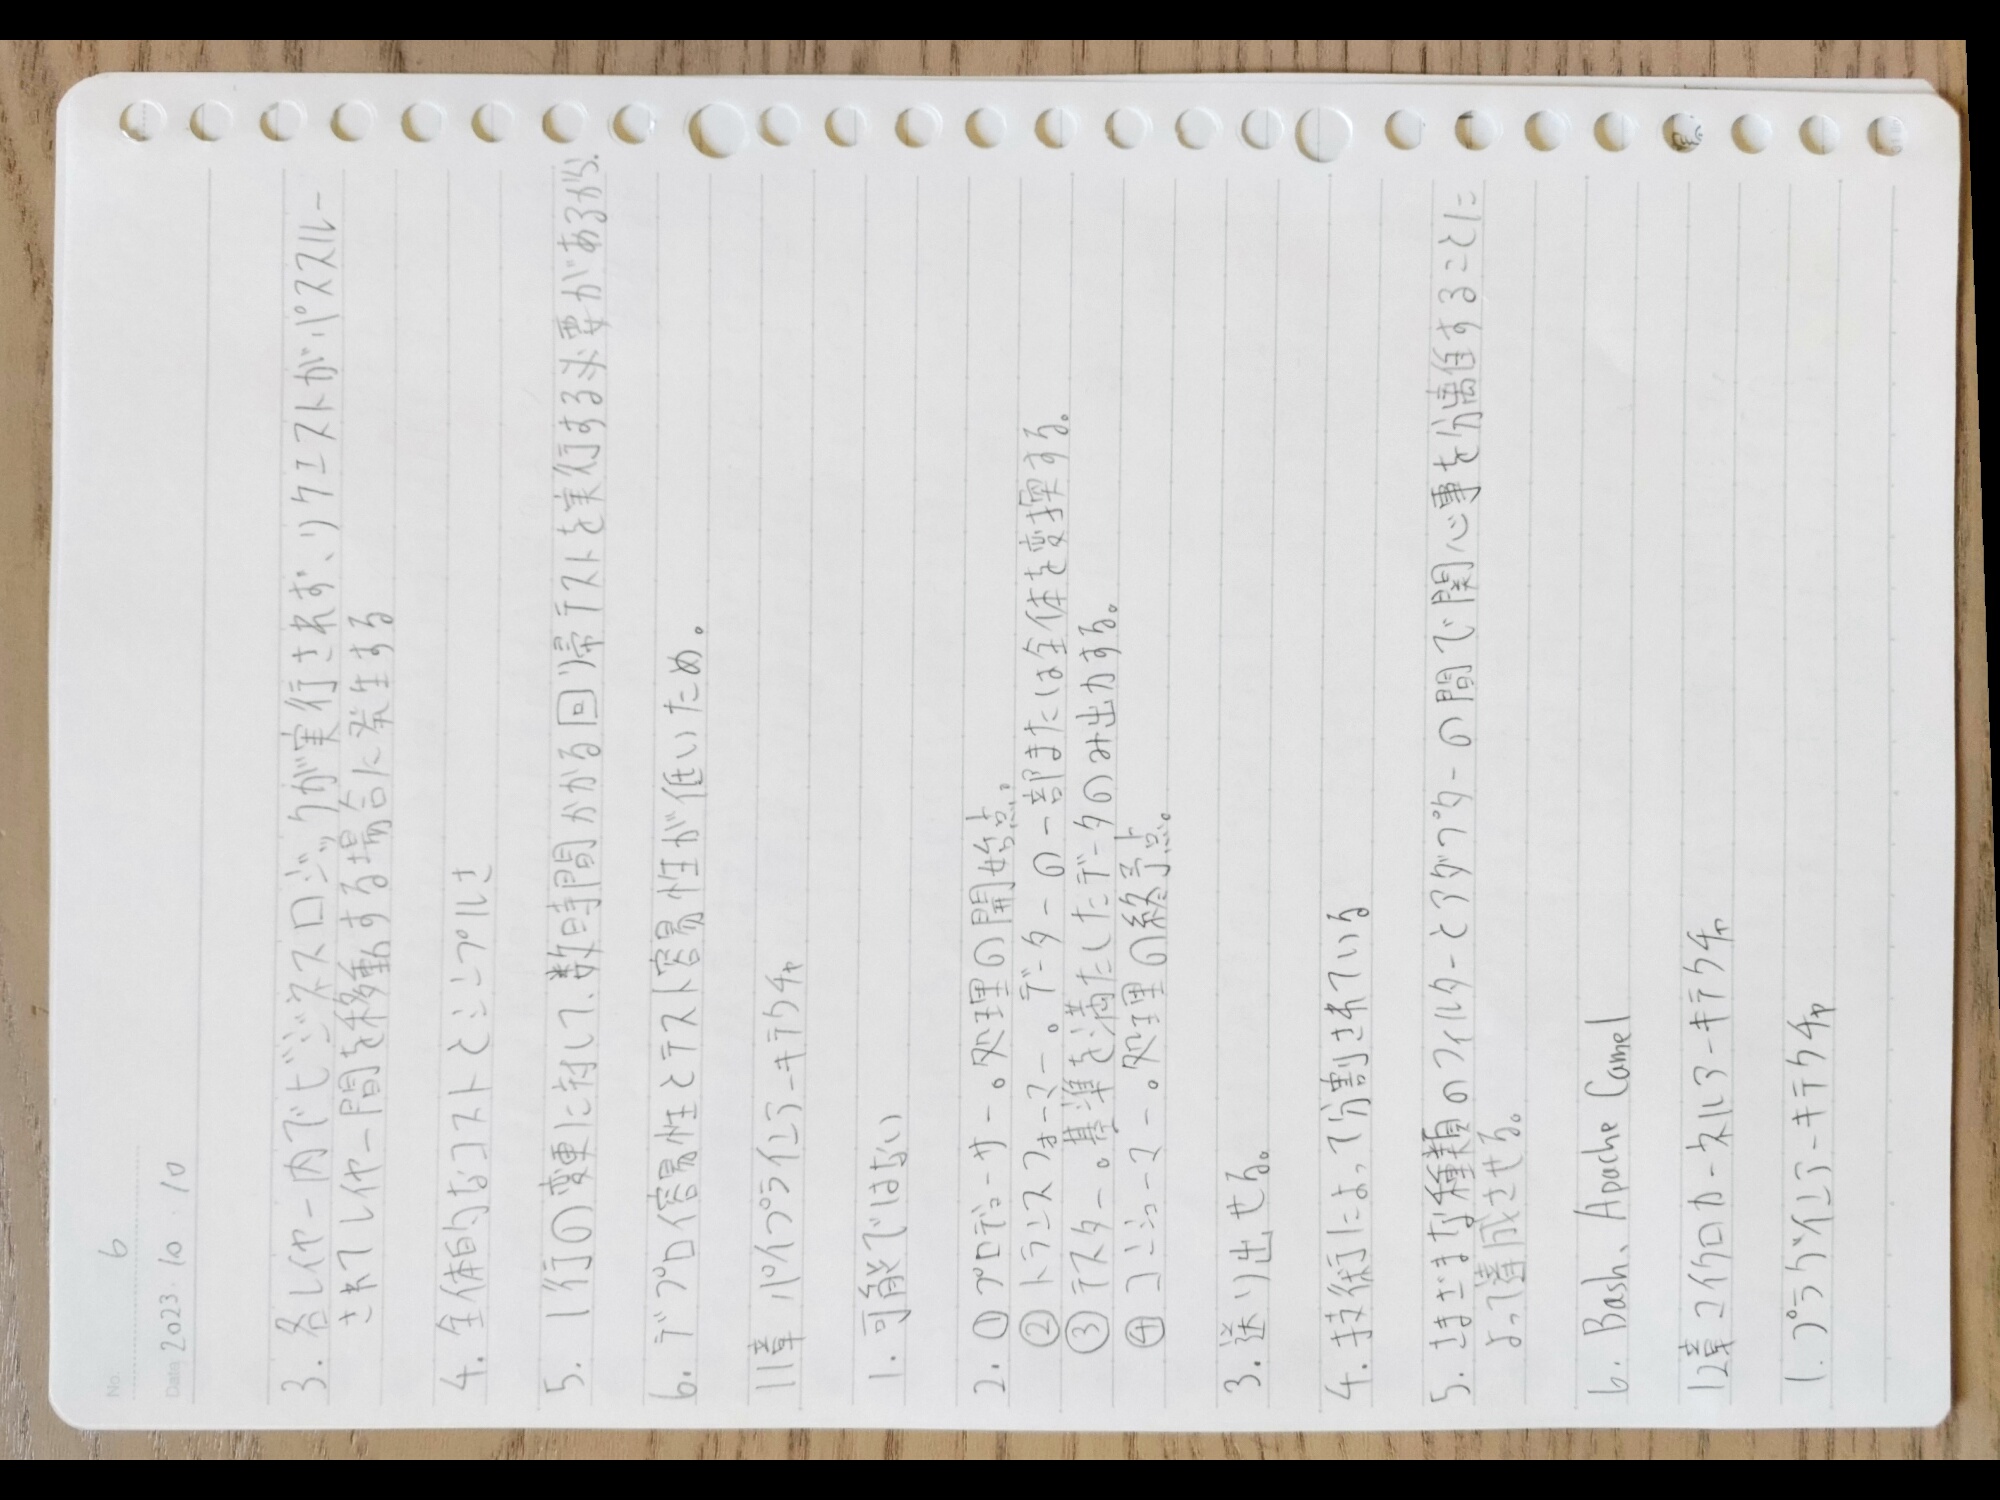 No. 6
Date 2023.10.10
3. 各レイヤー内でビジネスロジックが実行されず、リクエストがパススルー
されてレイヤー間を移動する場合に発生する
4. 全体的なコストとシンプルさ
5. 1行の変更に対して、数時間かかる回帰テストを実行する必要があるから.
6. デプロイ容易性とテスト容易性が低いため。
11章 パイプラインアーキテクチャ
1. 可能ではない
2. ①プロデューサー。処理の開始点。
②トランスフォーマー。データーの一部または全体を変換する。
③テスター。基準を満たしたデータのみ出力する。
④コンシューマー。処理の終了点。
3. 送り出せる。
4. 技術によって分割されている
5. さまざまな種類のフィルターとアダプターの間で関心事を分離することに
よって達成させる。
6. Bash、Apache Camel
12章 マイクロカーネルアーキテクチャ
1. プラグインアーキテクチャ